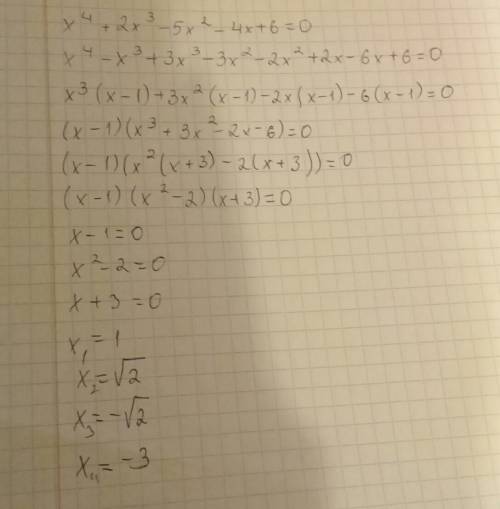 x⁴ + 2x³ - 5x² - 4x + 6 = 0
x⁴ - x³ + 3x³ - 3x² - 2x² + 2x - 6x + 6 = 0
x³ (x - 1) + 3x² (x - 1) - 2x (x - 1) - 6 (x - 1) = 0
(x - 1) (x³ + 3x² - 2x - 6) = 0
(x - 1) (x² (x + 3) - 2 (x + 3)) = 0
(x - 1) (x² - 2) (x + 3) = 0
x - 1 = 0
x² - 2 = 0
x + 3 = 0
x₁ = 1
x₂ = √2
x₃ = -√2
x₄ = -3